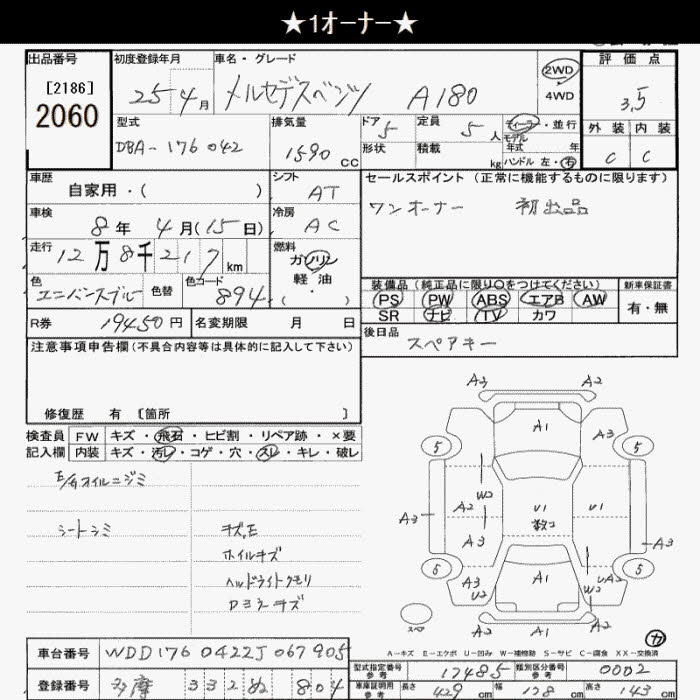 ★1オーナー★
出品番号
[2186]
2060
初度登録年月
25年4月
車名・グレード
メルセデスベンツ A180
2WD
4WD
評価点
3.5
外装 内装
C C
型式
DBA-176042
排気量
1590 CC
ドア 5
定員 5人
形状
積載 kg
ディーラー・並行
モデル年式 年
ハンドル 左・右
車歴
自家用・( )
シフト
AT
セールスポイント (正常に機能するものに限ります)
ワンオーナー 初出品
車検
8年4月(15日)
冷房
AC
走行
12万8千217km
燃料
ガソリン
軽油
( ・ )
色
ユニバースブルー
色替
色コード
894
装備品(純正品に限り○をつけてください)
PS PW ABS エアB AW
SR ナビ TV カワ
新車保証書
有・無
R券 19450円
名変期限 月 日
後日品
スペアキー
注意事項申告欄(不具合内容等は具体的に記入して下さい)
修復歴 有 〔箇所 〕
検査員記入欄
FW キズ・飛石・ヒビ割・リペア跡・×要
内装 キズ・汚レ・コゲ・穴・スレ・キレ・破レ
E/Gオイルニジミ
シートシミ
キズ,E
ホイルキズ
ヘッドライトクモリ
A3 A2
A1
A3
5 5
W2
A2
U1
数コ
U1
A3
A3
A3
5 5
A3
U2
A1
UA2
スペア
A2 A2
A-キズ E-エクボ U-凹み W-補修跡 S-サビ C-腐食 XX-交換済
車台番号 WDD1760422J067905
登録番号 多摩 332 ぬ 804
型式指定番号 参考 17485
類別区分番号 参考 0002
車庫証明用 参考
長さ 429 cm
幅 178 cm
高さ 143 cm